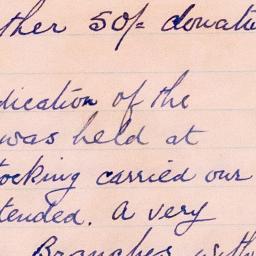 ther 50/- donatio
dication of the
was held at
ocking carried our
tended. A very
Branches with